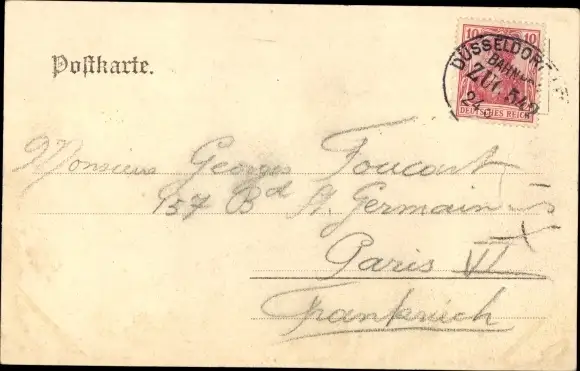 Postkarte.
10 10
DÜSSELDORF
BAHN
ZUG 542
24
DEUTSCHES REICH
Monsieur Georges Foucart
157 Bd St. Germain
Paris VI
Frankreich